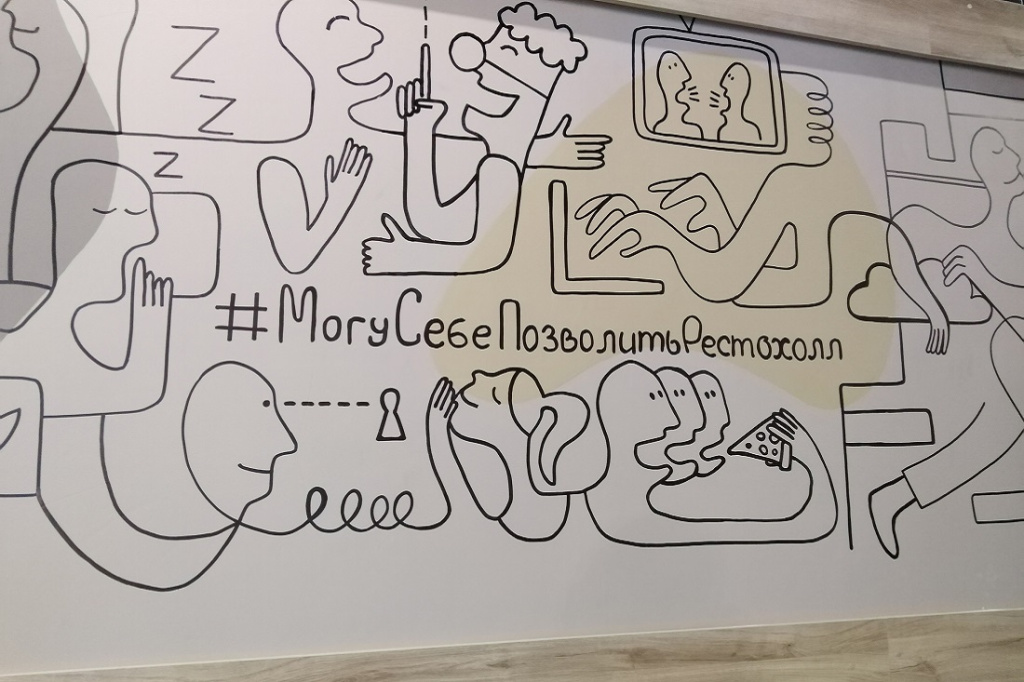 Z
Z
Z
#МогуСебеПозволитьРестохолл